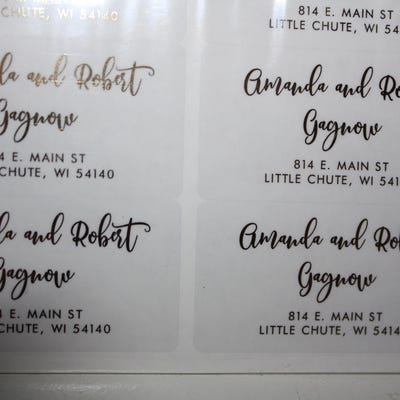 CHUTE, WI 54140
814 E. MAIN ST
LITTLE CHUTE, WI 54
and Robert
Gagnow
4 E. MAIN ST
CHUTE, WI 54140
Amanda and Ro
Gagnow
814 E. MAIN ST
LITTLE CHUTE, WI 541
da and Robert
Gagnow
4 E. MAIN ST
CHUTE, WI 54140
Amanda and Ro
Gagnow
814 E. MAIN ST
LITTLE CHUTE, WI 5414